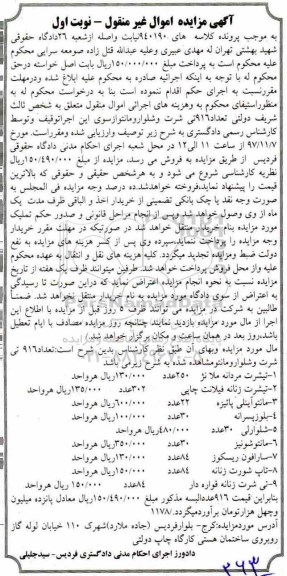 آگهی مزایده اموال غیر منقول – نوبت اول
به موجب پرونده کلاسه های ۹۴۰۱۹۰ثابت واصله ازشعبه ۲۶دادگاه حقوقی
شهید بهشتی تهران له مهدی عبیری وعلیه عبدالله قتال زاده صومعه سرایی محکوم
علیه محکوم است به پرداخت مبلغ ۱۵۰/۰۰۰/۰۰۰ریال بابت اصل خواسته درحق
محکوم له با توجه به اینکه اجرائیه صادره به محکوم علیه ابلاغ شده ودرمهلت
مقرربنسبت به اجرای حکم اقدام ننموده است بنا به درخواست محکوم له به
منظوراستیفای محکوم به وهزینه های اجرائی اموال منقول متعلق به شخص ثالث
شریف دولتی تعداد۹۱۶تی شرت وشلوارومانتوازسوی این اجراتوقیف وتوسط
کارشناس رسمی دادگستری به شرح زیر توصیف وارزیابی شده ومقرراست. مورخ
۹۷/۱۱/۷ از ساعت ۱۱ الی۱۲ در محل شعبه اجرای احکام مدنی دادگاه حقوقی
فردیس از طریق مزایده به فروش می رسد، مزایده از مبلغ ۱۵۰/۴۹۰/۰۰۰ریال
نظریه کارشناسی شروع می شود و به هرشخص حقیقی و حقوقی که بالاترین
قیمت را پیشنهاد نماید،فروخته خواهدشد.ده درصد وجه مزایده فی المجلس به
صورت وجه نقد یا چک بانکی تضمینی از خریدار اخذ و الباقی ظرف مدت یک
ماه از وی وصول خواهد شد و پس از انجام مراحل قانونی و صدور حکم تملیک
مورد مزایده بنام خریدار منتقل خواهد شد در صورتیکه در مهلت مقرر خریدار
وجه مزایده را پرداخت ننماید،سپرده وی پس از کسر هزینه های مزایده به نفع
دولت ضبط ومزایده تجدید میگردد. کلیه هزینه های نقل و انتقال به عهده محکوم
علیه واز محل فروش پرداخت خواهد شد. طرفین میتوانند ظرف یک هفته از تاریخ
مزایده نسبت به نحوه انجام مزایده اعتراض نمایند که دراین صورت تا رسیدگی
به اعتراض از سوی دادگاه مورد مزایده به نام خریدار منتقل نخواهد شد. ضمناً
طالبین به شرکت در مزایده می توانند ظرف ۵ روز قبل از مزایده با اطلاع این
اجرا از مال مورد مزایده بازدید نمایند. چنانچه روز مزایده مصادف با ایام تعطیل
باشد،روز بعد در همان ساعت و مکان برگزار خواهد شد.
مال مورد مزایده وبهای آن طبق نظر کارشناس بدین شرح است:تعداد۹۱۶ تی
شرت وشلوارومانتومشاهده شد به شرح زیرمی باشد
۱-تیشرت مردانه ملا نژ ۲۵۰عدد ۱۳۰/۰۰۰ریال هرواحد
۲-تیشرت زنانه فیلانت چاپی ۳۰۲عدد ۱۳۵/۰۰۰ریال هرواحد
۳-مانتوآبنلی پائیزه ۲۲عدد ۶۰۰/۰۰۰ هرواحد
۴-بلوزپسرانه ۳۰عدد ۱۰۰/۰۰۰ هرواحد
۵-شلوارلی ۳۰عدد ۴۸۰/۰۰۰ریال هرواحد
۶-مانتوشونیز ۳۰عدد ۳۵۰/۰۰۰ هرواحد
۷-سارافون ریسکوز ۸۴عدد ۱۳۰/۰۰۰ هرواحد
۸-تاپ شورت زنانه ۸۴عدد ۱۰۰/۰۰۰ هرواحد
۹-تی شرت زنانه قواره دار ۸۴عدد ۱۵۰/۰۰۰ ریال هرواحد
بنابراین قیمت ۹۱۶عددالبسه مذکور مبلغ ۱۵۰/۴۹۰/۰۰۰ ریال معادل پانزده میلیون
وچهل هزارتومان برآوردمیگردد. ۱۱۷۸/
آدرس موردمزایده:کرج- بلوارفردیس (جاده ملارد)شهرک ۱۱۰ خیابان لوله گاز
روبروی ساختمان هستی کارگاه چاپ دولتی
دادورز اجرای احکام مدنی دادگستری فردیس-سیدجلیلی
۳۶۳